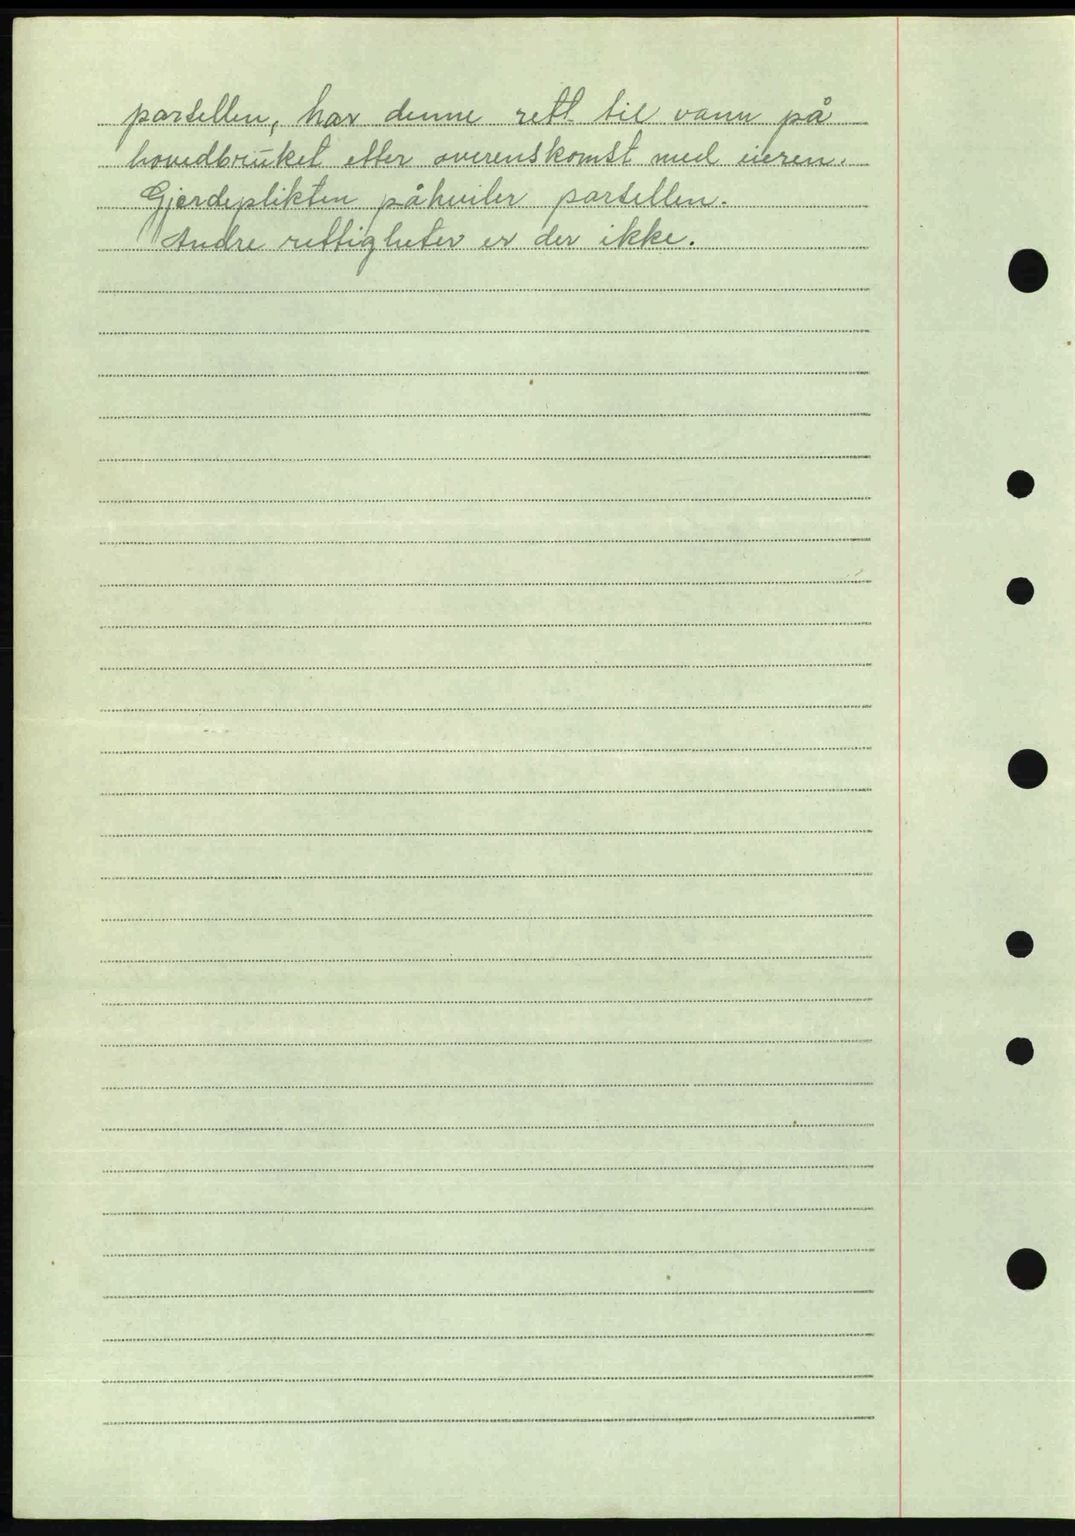 parsellen, har denne rett til vann på
hovedbruket etter overenskomst med eieren.
Gjerdeplikten påhviler parsellen.
Andre rettigheter er der ikke.